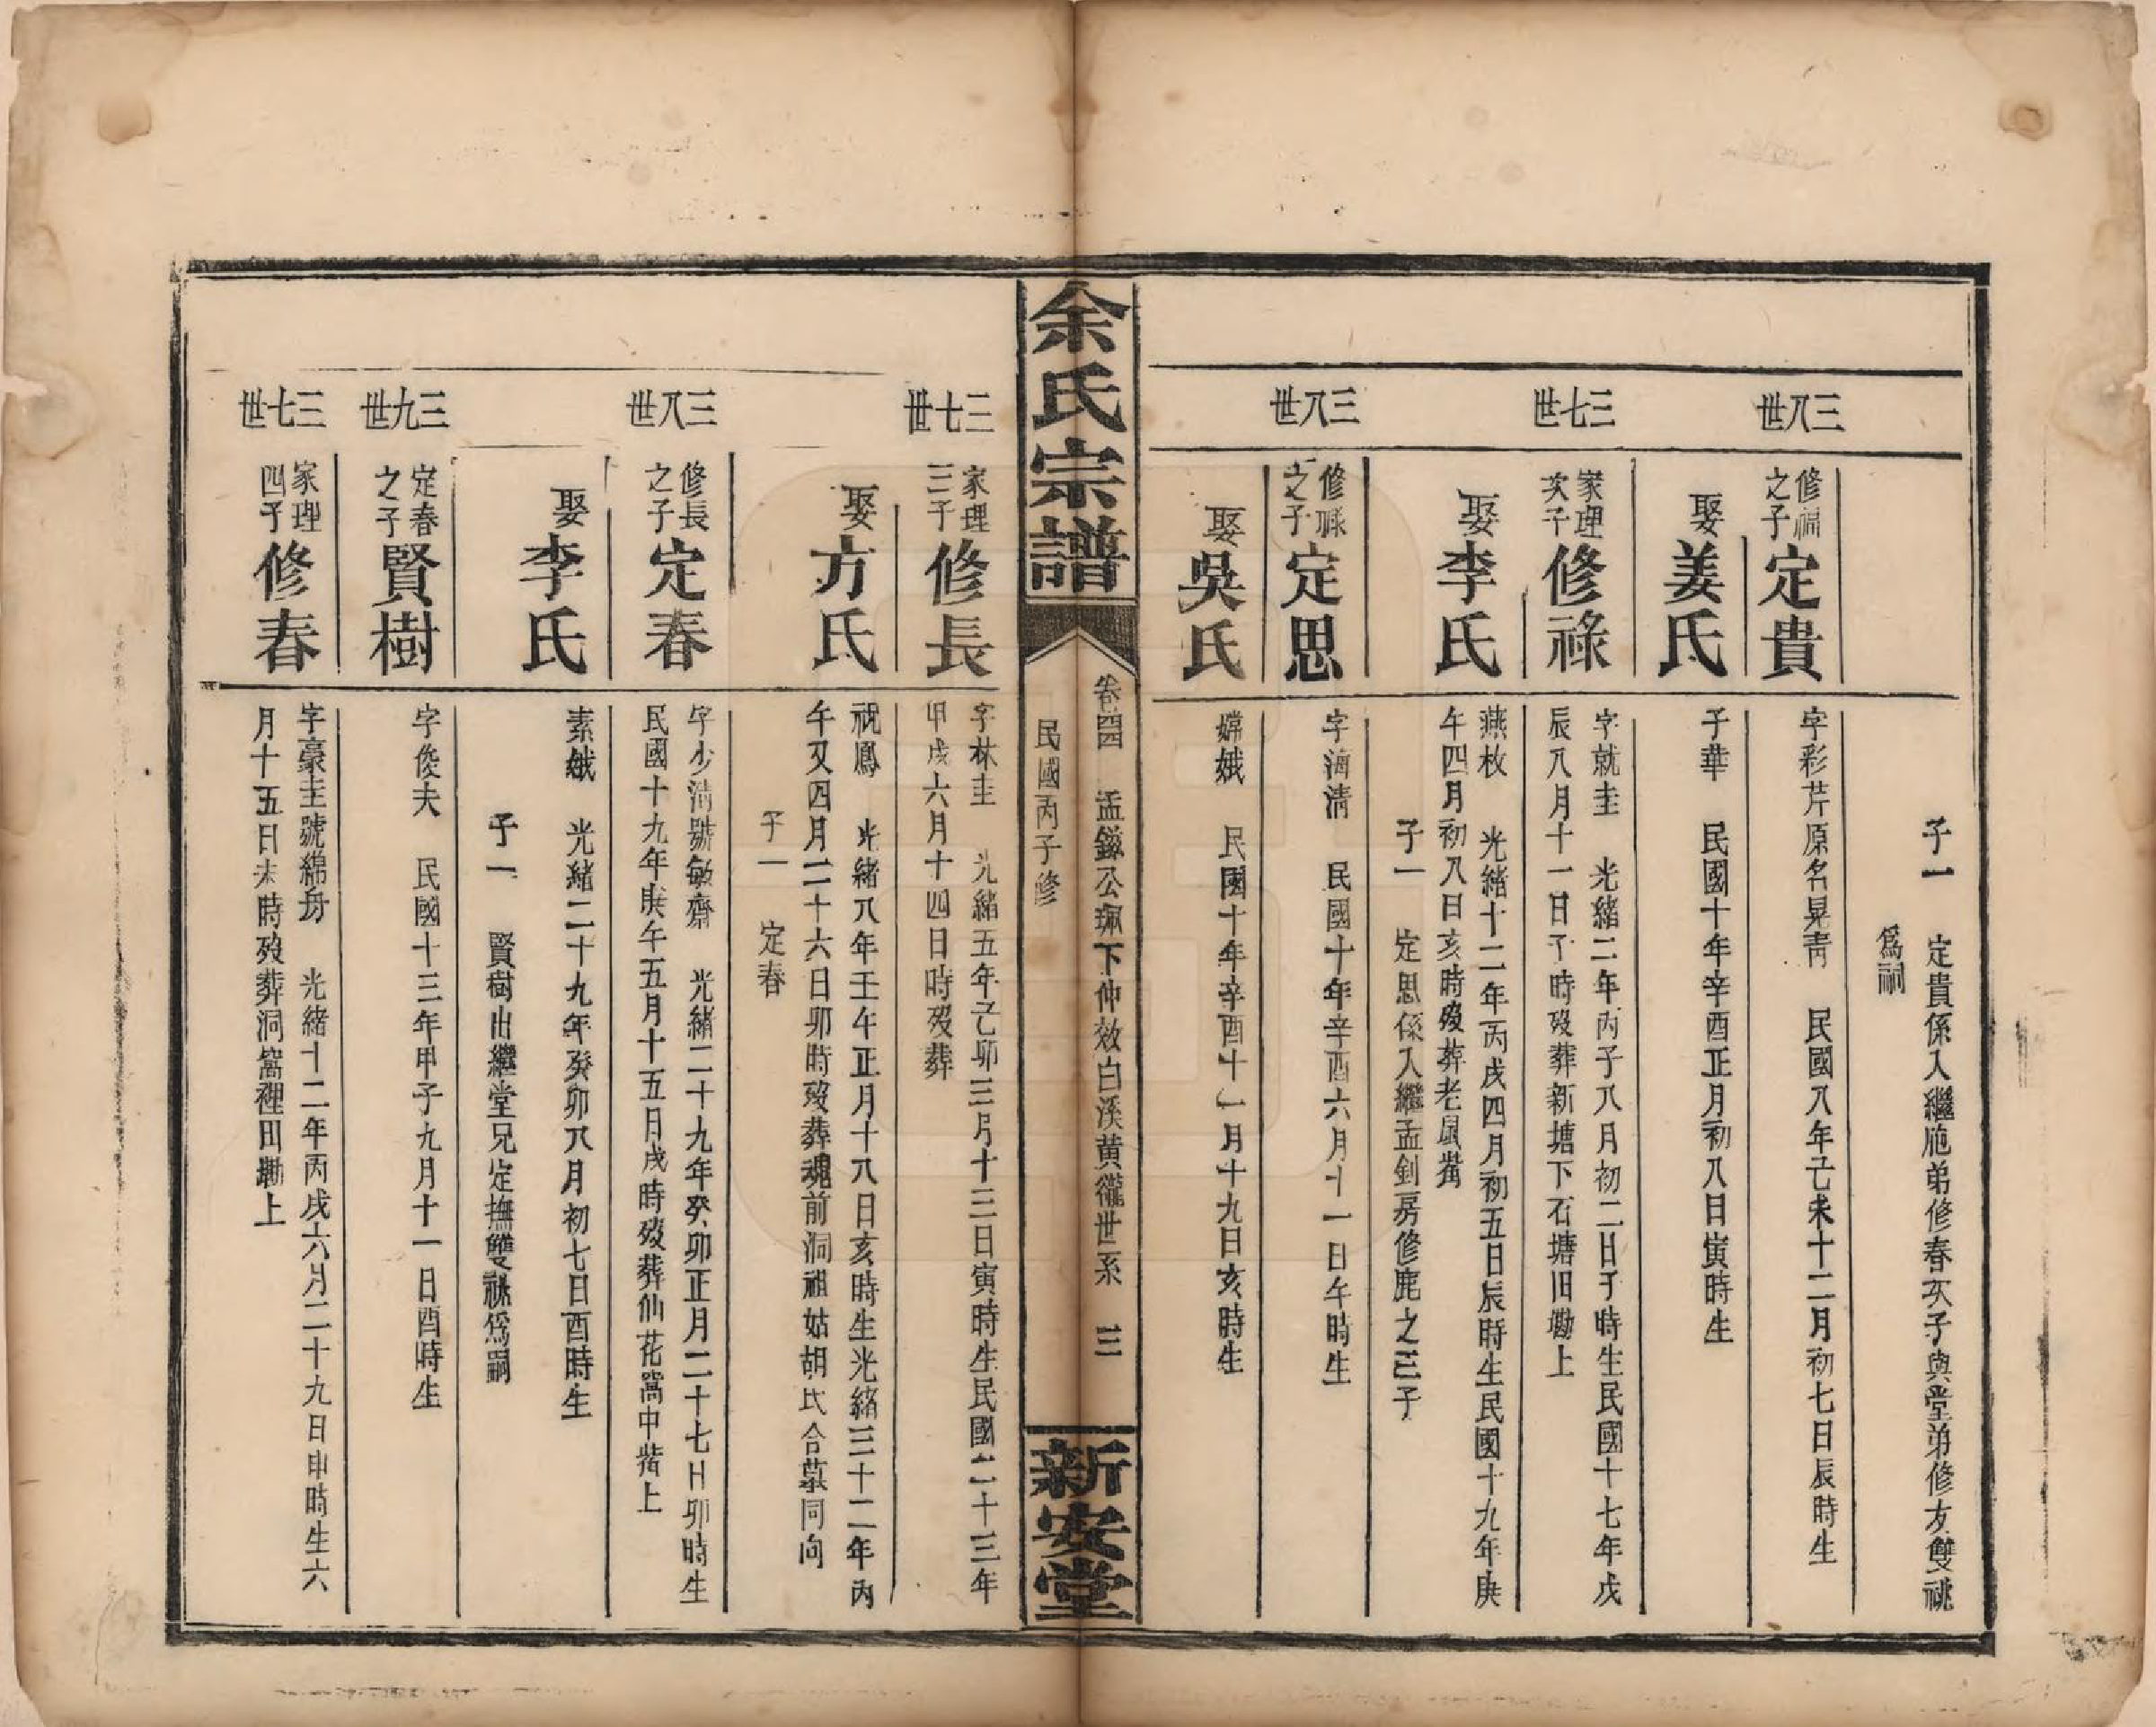 子一　定貴係入繼胞弟修春次子與堂弟修友雙祧
爲嗣
三八世
修祠之子
定貴
字彩芹原名晃青　民國八年己未十二月初七日辰時生
娶姜氏
子華　民國十年辛酉正月初八日寅時生
三七世
家理次子
修祿
字就圭　光緒二年丙子八月初二日子時生民國十七年戊
辰八月十一日子時歿葬新塘下石塘旧墈上
娶李氏
燕枚　光緒十二年丙戌四月初五日辰時生民國十九年庚
午四月初八日亥時歿葬老鼠嘴
子一　定思係入繼孟釗房修鹿之三子
三八世
修祿之子
定思
字海清　民國十年辛酉六月十一日午時生
娶吳氏
嫦娥　民國十年辛酉十一月十九日亥時生
余氏宗譜
卷四　孟鎰公珮下仲效白溪黃龍世系　三
民國丙子修
新安堂
三七世
家理三子
修長
字林圭　光緒五年乙卯三月十三日寅時生民國二十三年
甲戌六月十四日時歿葬
娶方氏
祝鳳　光緒八年壬午正月十八日亥時生光緒三十二年丙
午又四月二十六日卯時歿葬魂前洞祖姑胡氏合墓同向
子一　定春
三八世
修長之子
定春
字少清號敏齋　光緒二十九年癸卯正月二十七日卯時生
民國十九年庚午五月十五日戌時歿葬仙花窩中嘴上
娶李氏
素娥　光緒二十九年癸卯八月初七日酉時生
子一　賢樹出繼堂兄定撫雙祧爲嗣
三九世
定春之子
賢樹
字俊夫　民國十三年甲子九月十一日酉時生
三七世
家理四子
修春
字豪圭號綿舟　光緒十二年丙戌六月二十九日申時生六
月十五日未時歿葬洞窩裡田墈上